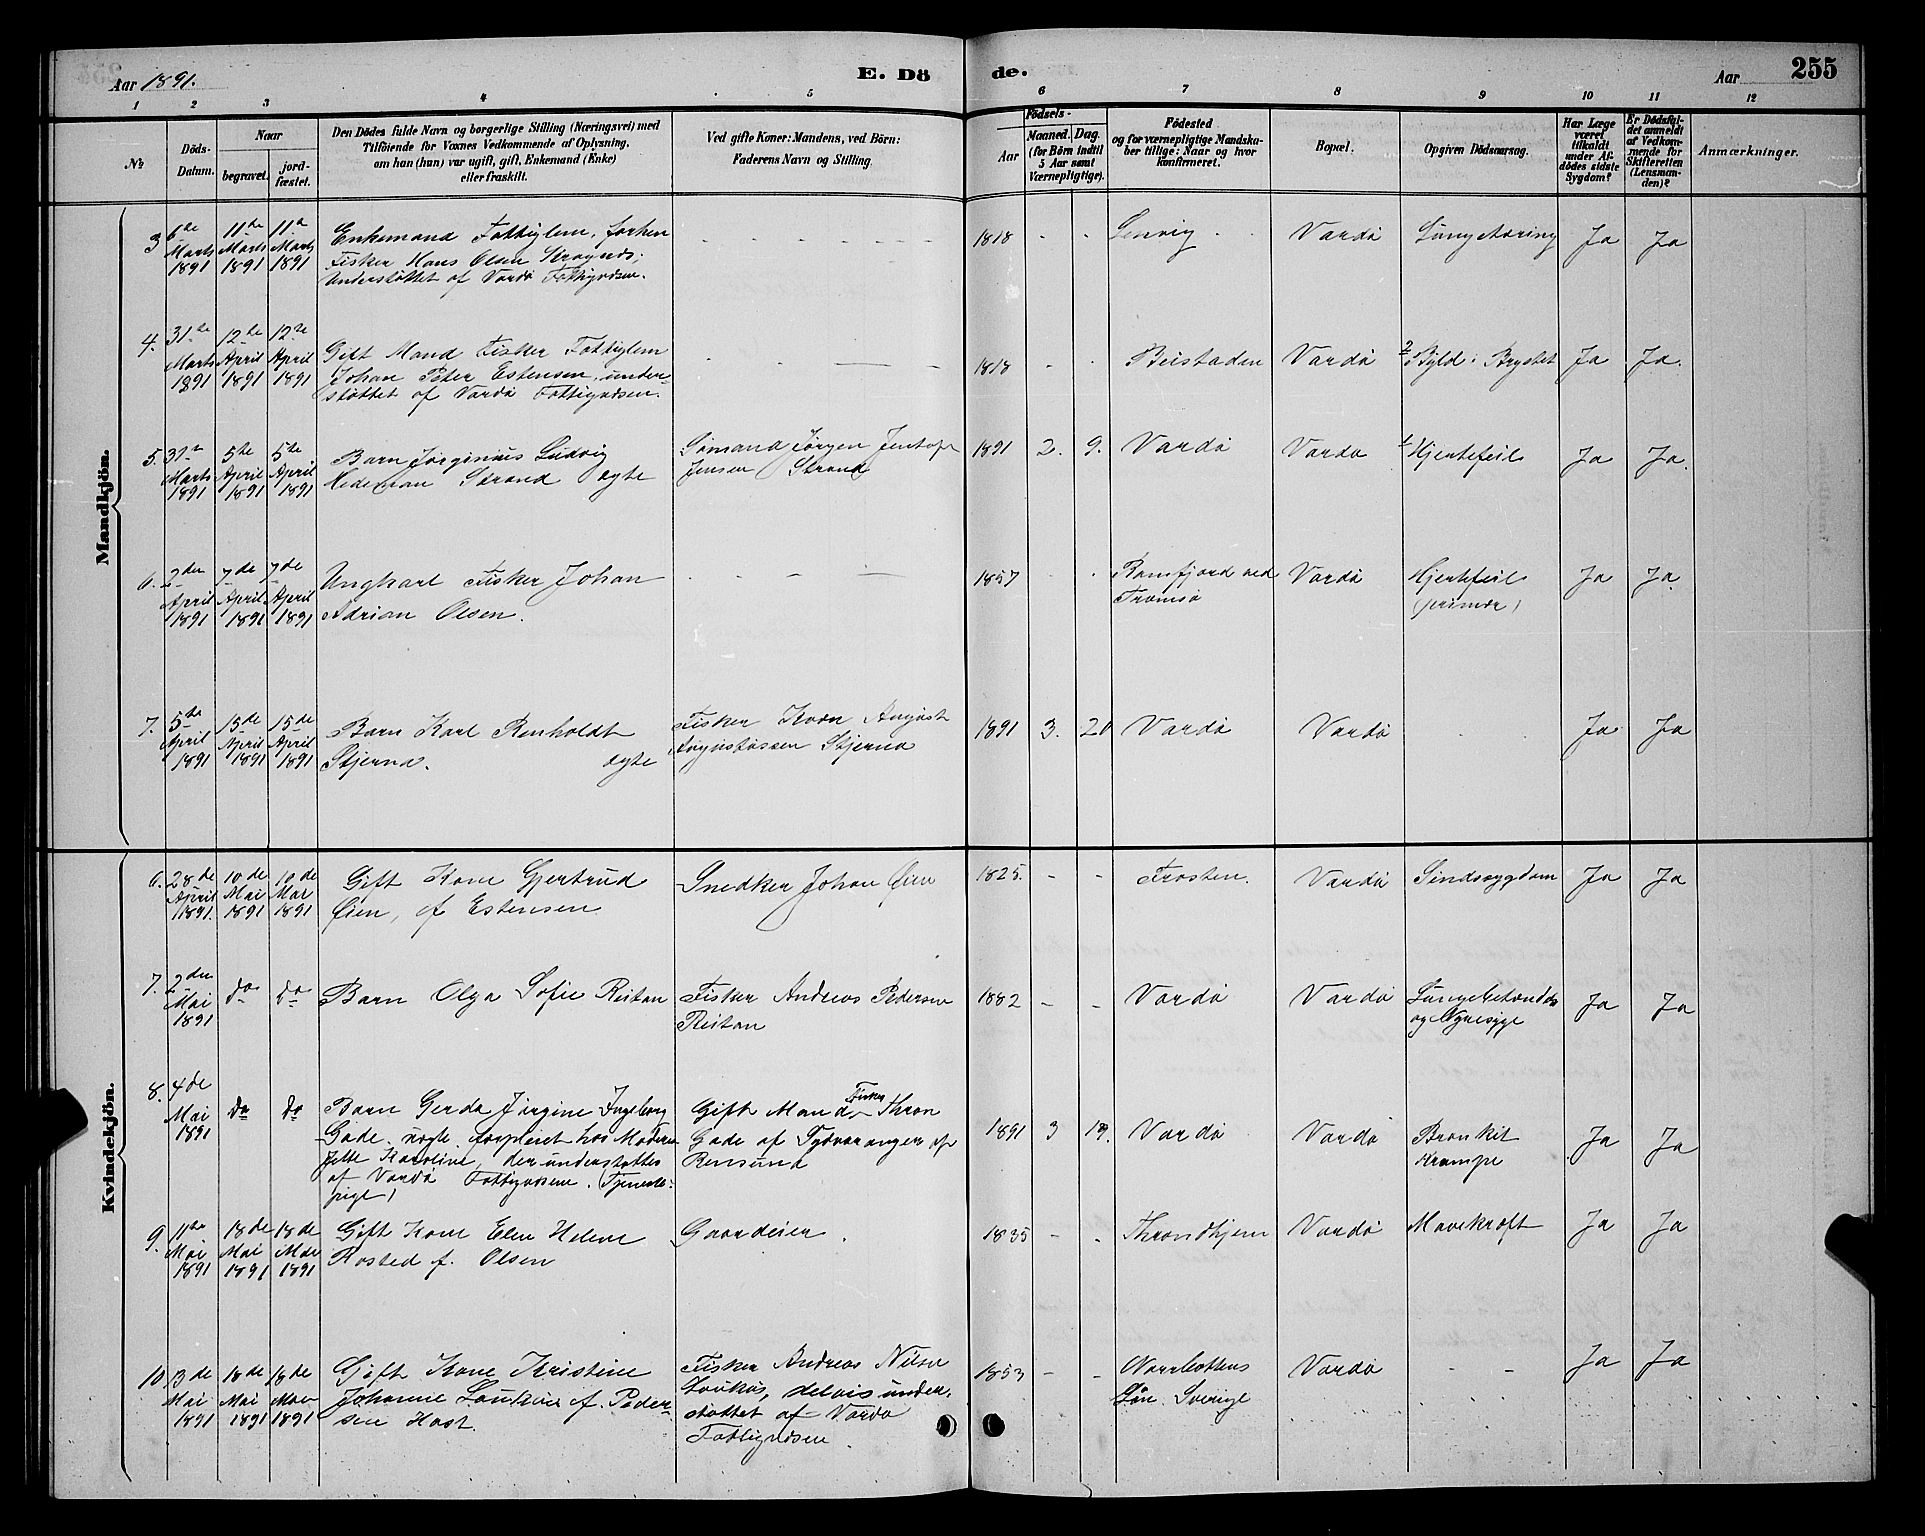 Aar 1891.
E. Dö
de.
Aar
255
1 2 3 4 5 6 7 8 9 10 11 12
№
Döds-
Datum.
Naar
begravet.
jord-
fæstet.
Den Dödes fulde Navn og borgerlige Stilling (Næringsvei) med
Tilföiende for Voxnes Vedkommende af Oplysning,
om han (hun) var ugift, gift, Enkemand (Enke)
eller fraskilt.
Ved gifte Koner: Mandens, ved Börn:
Faderens Navn og Stilling.
Födsels-
Aar
Maaned. Dag.
(for Börn indtil
5 Aar samt
Værnepligtige).
Födested
og for værnepligtige Mandska-
ber tillige: Naar og hvor
konfirmeret.
Bopæl.
Opgiven Dödsaarsag.
Har Læge
været
tilkaldt
under Af-
dödes sidste
Sygdom?
Er Dödsfal-
det anmeldt
af Vedkom-
mende for
Skifteretten
(Lensman-
den)?
Anmærkninger.
Mandkjön.
3 6te Marts 1891 11te Marts 1891 11te Marts 1891
Enkemand Fattiglem, forhen
Fisker Hans Olsen
Understöttet af Vardö Fattigvæsen.
1818 - - Lenvig Vardö Lungetæring Ja Ja
4. 31te Marts 1891 12te April 1891 12te April 1891
Gift Mand Fisker Fattiglem
Johan Peter Estensen, under-
stöttet af Vardö Fattigvæsen.
1818 - - Beistaden Vardö Byld i Brystet Ja Ja.
5. 31te Marts 1891 5te April 1891 5te April 1891
Barn Jörginus Ludvig
Strand ægte
Sömand Jörgen Jentoft
Jensen Strand
1891 2. 9. Vardö Vardö Hjertefeil Ja Ja.
6. 2den April 1891 7de April 1891 7de April 1891
Ungkarl Fisker Johan
Adrian Olsen.
1857 - - Ramfjord ved
Tromsö
Vardö Hjertefeil
(primær)
Ja Ja
7. 5te April 1891 15de April 1891 15de April 1891
Barn Karl Renholdt
Stjerna. ægte
Fisker Koen August
Augustassen Stjerna
1891 3. 20 Vardö Vardö Ja Ja
Kvindekjön.
6. 28de April 1891. 10de Mai 1891 10de Mai 1891
Gift Kone Gjertrud
Öien, af Estensen
Snedker Johan Öien
1825. - - Frosten. Vardö Sindssygdom Ja Ja
7. 2den Mai 1891 do do
Barn Olga Sofie Reitan
Fisker Andreas Pedersen
Reitan
1882 - - Vardö Vardö Lungebetændelse
og Nyresyge
Ja Ja
8. 4de Mai 1891 do do
Barn Gerda Jörgine Ingeborg
Gade, uægte, forpleiet hos Moderen
Jette Karoline, der understöttes
af Vardö Fattigvæsen. (Tjeneste-
pige)
Gift Mand Fisker Thron
Gade af Sydvaranger
Rensund
1891 3 19. Vardö Vardö Bronkit
Krampe
Ja Ja
9. 11te Mai 1891 18de Mai 1891 18de Mai 1891
Gift Kone Elen Helene
Rosted f. Olsen
Gaardeier.
1835 - - Throndhjem Vardö Mavekræft Ja Ja
10. 13de Mai 1891 18de Mai 1891 18de Mai 1891
Gift Kone Kristine
Johanne Loukus f. Peder-
sen Hast.
Fisker Andreas Nilsen
Loukus, delvis under-
stöttet af Vardö
Fattigvæsen.
1853 - - Norrbottens
Län. Sverige
Vardö - - Ja Ja